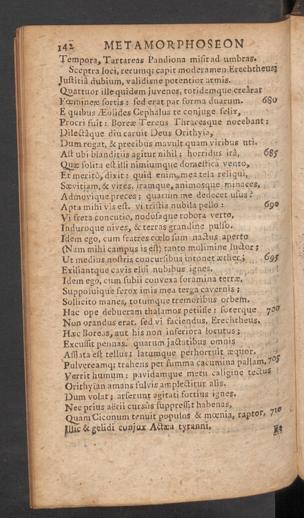 142 METAMORPHOSEON
Tempora, Tartareas Pandiona misit ad umbras.
Sceptra loci, rerumq; capit moderamen Erechtheus;
Justitiâ dubium, validisne potentior armis.
Quattuor ille quidem juvenes, totidemque creârat
Fœmineæ sortis: sed erat par forma duarum. 680
E quibus Æolides Cephalus te conjuge felix,
Procri fuit: Boreæ Tereus Thracesque nocebant:
Dilectâque diu caruit Deus Orithyia,
Dum rogat, & precibus mavult quam viribus uti.
Ast ubi blanditiis agitur nihil; horridus irâ, 685
Quæ solita est illi nimiumque domestica vento,
Et meritò, dixit: quid enim mea tela reliqui,
Sævitiam, & vires, iramque, animosque minaces,
Admovique preces; quarum me dedecet usus?
Apta mihi vis est, vi tristia nubila pello: 690
Vi freta concutio, nodosaque robora verto,
Induroque nives, & terras grandine pulso.
Idem ego, cum fratres cœlo sum nactus aperto
(Nam mihi campus is est) tanto molimine luctor;
Ut medius nostris concursibus intonet æther; 695
Exiliantque cavis elisi nubibus ignes.
Idem ego, cum subii convexa foramina terræ,
Supposuique ferox imis mea terga cavernis;
Sollicito manes, totumque tremoribus orbem.
Hac ope debueram thalamos petiisse: socerque 700
Non orandus erat, sed vi faciendus, Erechtheus.
Hæc Boreas, aut his non inferiora locutus;
Excussit pennas: quarum jactatibus omnis
Afflata est tellus: latumque perhorruit æquor.
Pulvereamq; trahens per summa cacumina pallam, 705
Verrit humum: pavidamque metu caligine tectus
Orithyian amans fulvis amplectitur alis.
Dum volat; arserunt agitati fortius ignes.
Nec prius aërii cursus suppressit habenas,
Quam Ciconum tenuit populos & mœnia, raptor. 710
Illic & gelidi conjux Actæa tyranni,